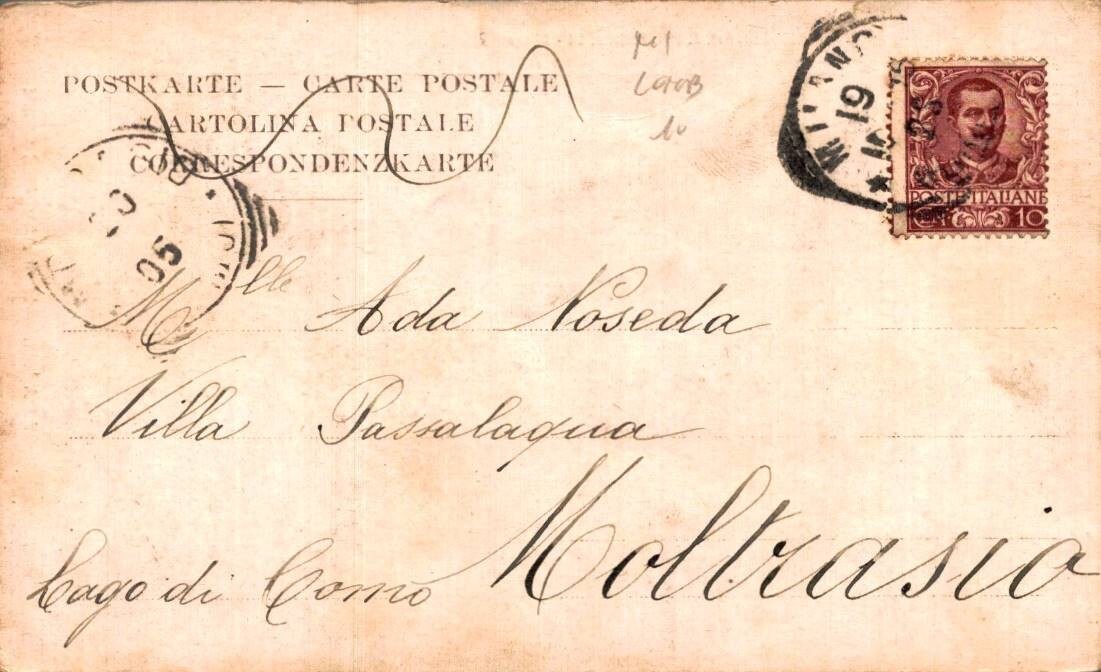 POSTKARTE — CARTE POSTALE
CARTOLINA POSTALE
CORRESPONDENZKARTE
MILANO
19
POSTE ITALIANE
CEN. 10
10
05
Mlle Ada Noseda
Villa Passalaqua
Moltrasio
Lago di Como